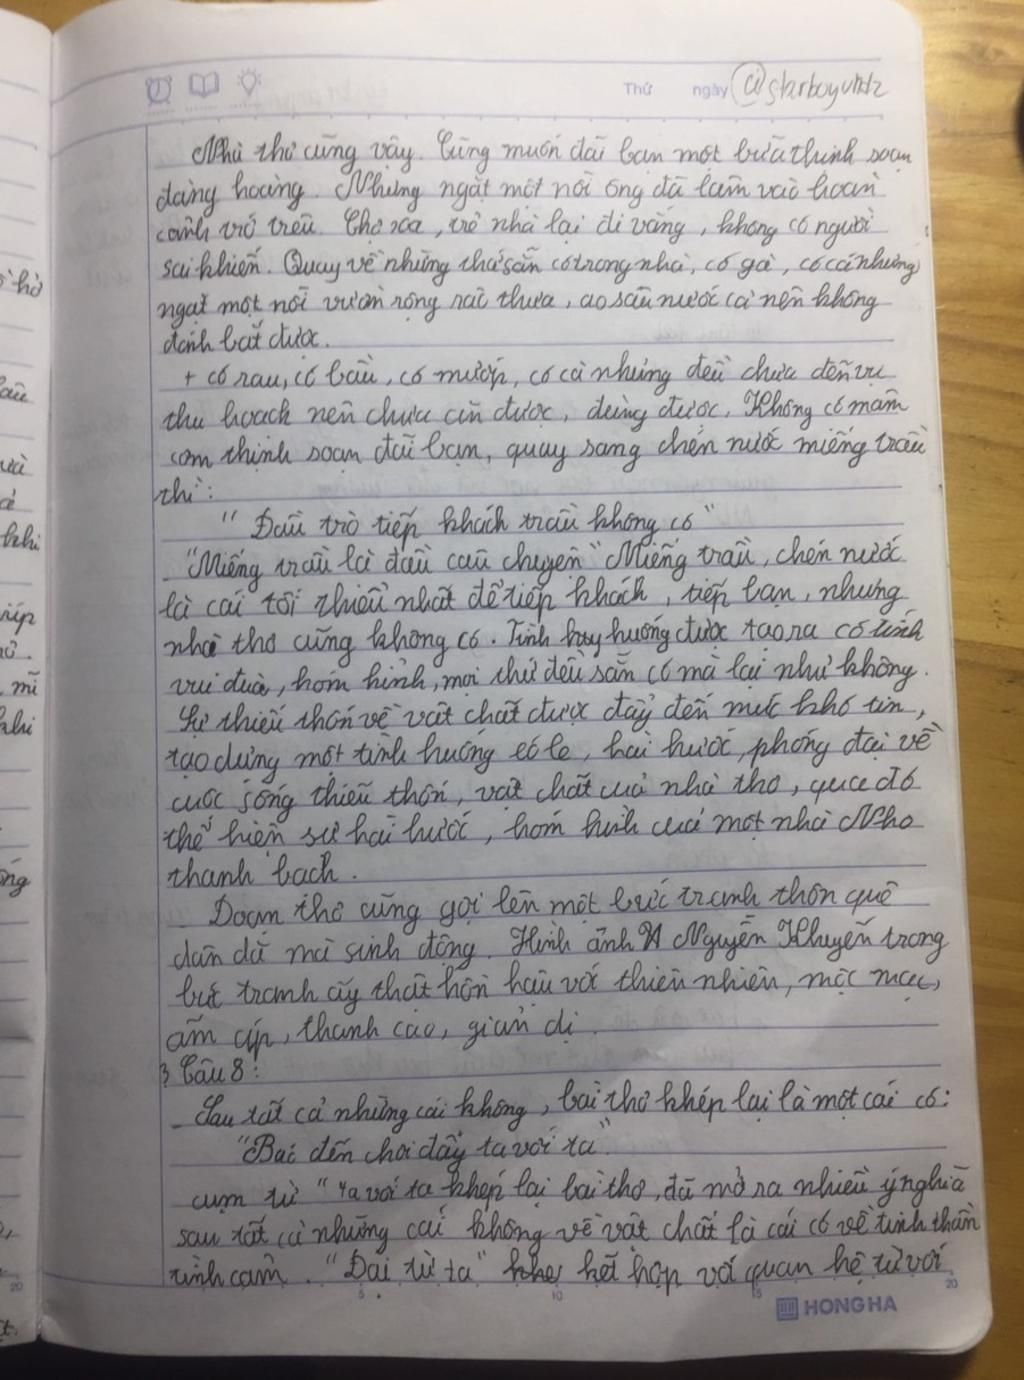 Thứ ngày @starboyvntz
Nhà thơ cũng vậy. Cũng muốn đãi bạn một bữa thịnh soạn
đàng hoàng. Nhưng ngặt một nỗi ông đã lâm vào hoàn
cảnh trớ trêu. Chợ xa, trẻ nhà lại đi vắng, không có người
sai khiến. Quay về những thứ sẵn có trong nhà, có gà, có cá nhưng
ngặt một nỗi vườn rộng rào thưa, ao sâu nước cả nên không
đánh bắt được.
+ có rau, có bầu, có mướp, có cà nhưng đều chưa đến vụ
thu hoạch nên chưa ăn được, dùng được. Không có mâm
cơm thịnh soạn đãi bạn, quay sang chén nước miếng trầu
thì:
" Đầu trò tiếp khách trầu không có"
"Miếng trầu là đầu câu chuyện" Miếng trầu, chén nước
là cái tối thiểu nhất để tiếp khách, tiếp bạn, nhưng
nhà thơ cũng không có. Tình huy huống được tạo ra có tính
vui đùa, hóm hỉnh, mọi thứ đều sẵn có mà lại như không.
Sự thiếu thốn về vật chất được đẩy đến mức khó tin,
tạo dựng một tình huống éo le, hài hước, phóng đại về
cuộc sống thiếu thốn, vật chất của nhà thơ, qua đó
thể hiện sự hài hước, hóm hỉnh của một nhà Nho
thanh bạch.
Đoạn thơ cũng gợi lên một bức tranh thôn quê
dân dã mà sinh động. Hình ảnh Nguyễn Khuyến trong
bức tranh ấy thật hồn hậu với thiên nhiên, mộc mạc,
ấm áp, thanh cao, giản dị.
3 Câu 8:
- Sau tất cả những cái không, bài thơ khép lại là một cái có:
"Bác đến chơi đây ta với ta"
cụm từ "ta với ta khép lại bài thơ, đã mở ra nhiều ý nghĩa
sau tất cả những cái không về vật chất là cái có về tinh thần
tình cảm. "Đại từ ta" kết hợp với quan hệ từ với
5 10 15 20
HONG HA